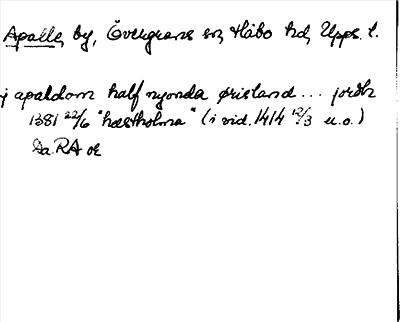 Apalle, by, Övergrans sn, Håbo hd, Upps. l.
j apaldom half nyonda øreland ... jordh
1381 22/6 "hæstholma" (i vid. 1414 12/3 u.o.)
Sv. RA or